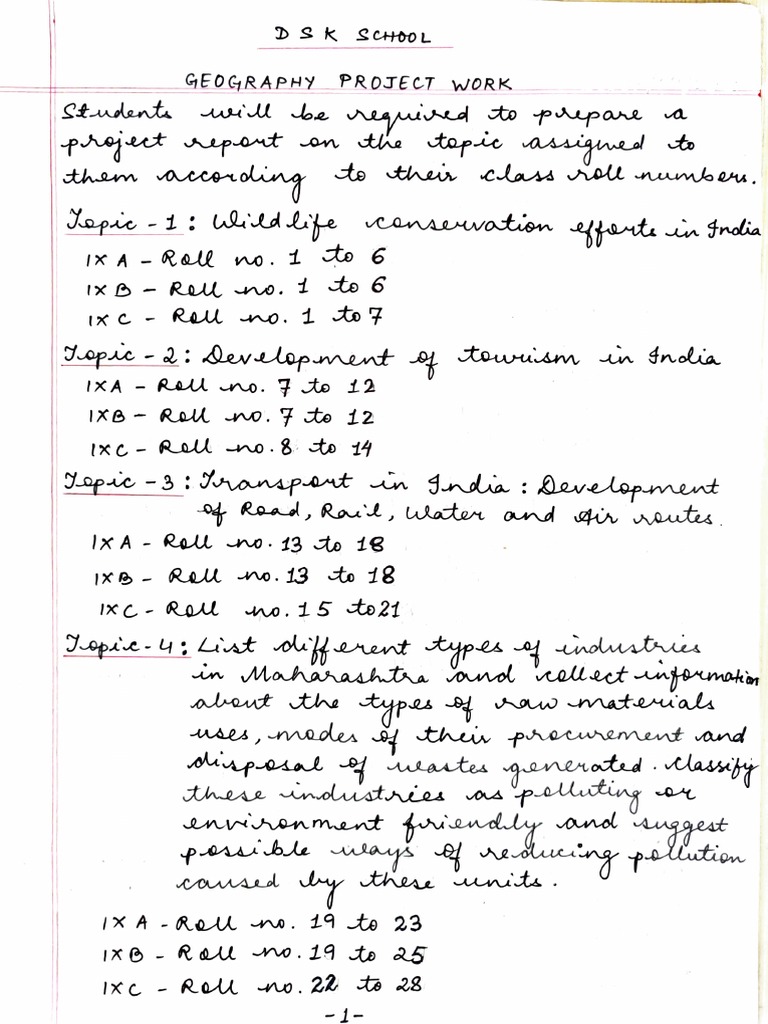 D S K SCHOOL
GEOGRAPHY PROJECT WORK
Students will be required to prepare a
project report on the topic assigned to
them according to their class roll numbers.
Topic - 1 : Wildlife conservation efforts in India
IX A - Roll no. 1 to 6
IX B - Roll no. 1 to 6
IX C - Roll no. 1 to 7
Topic - 2 : Development of tourism in India
IXA - Roll no. 7 to 12
IXB - Roll no. 7 to 12
IXC - Roll no. 8 to 14
Topic - 3 : Transport in India : Development
of Road, Rail, Water and Air routes.
IXA - Roll no. 13 to 18
IXB - Roll no. 13 to 18
IXC - Roll no. 15 to 21
Topic - 4 : List different types of industries
in Maharashtra and collect information
about the types of raw materials
uses, modes of their procurement and
disposal of wastes generated. Classify
these industries as polluting or
environment friendly and suggest
possible ways of reducing pollution
caused by these units.
IX A - Roll no. 19 to 23
IXB - Roll no. 19 to 25
IXC - Roll no. 22 to 28
-1-